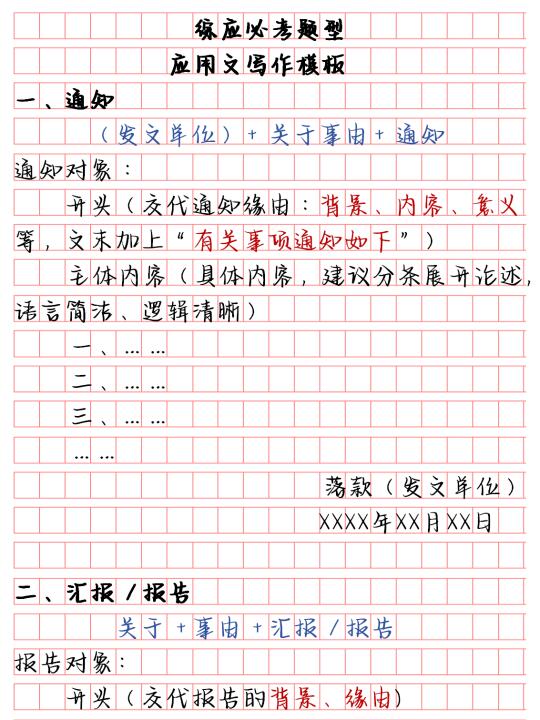 综应必考题型
应用文写作模板
一、通知
（发文单位）+关于事由+通知
通知对象：
开头（交代通知缘由：背景、内容、意义
等，文末加上“有关事项通知如下”）
主体内容（具体内容，建议分条展开论述，
语言简洁、逻辑清晰）
一、……
二、……
三、……
……
落款（发文单位）
XXXX年XX月XX日
二、汇报/报告
关于+事由+汇报/报告
报告对象：
开头（交代报告的背景、缘由）